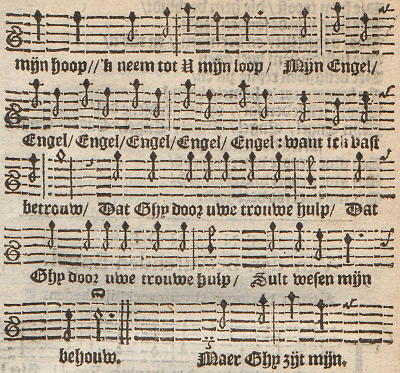 mijn hoop// 'k neem tot U mijn loop/ Mijn Engel/
Engel/ Engel/ Engel/ Engel/ Engel: want ick vast
betrouw/ Dat Ghy door uwe trouwe hulp/ Dat
Ghy door uwe trouwe hulp/ Sult wesen mijn
behouw. Maer Ghy zijt mijn.